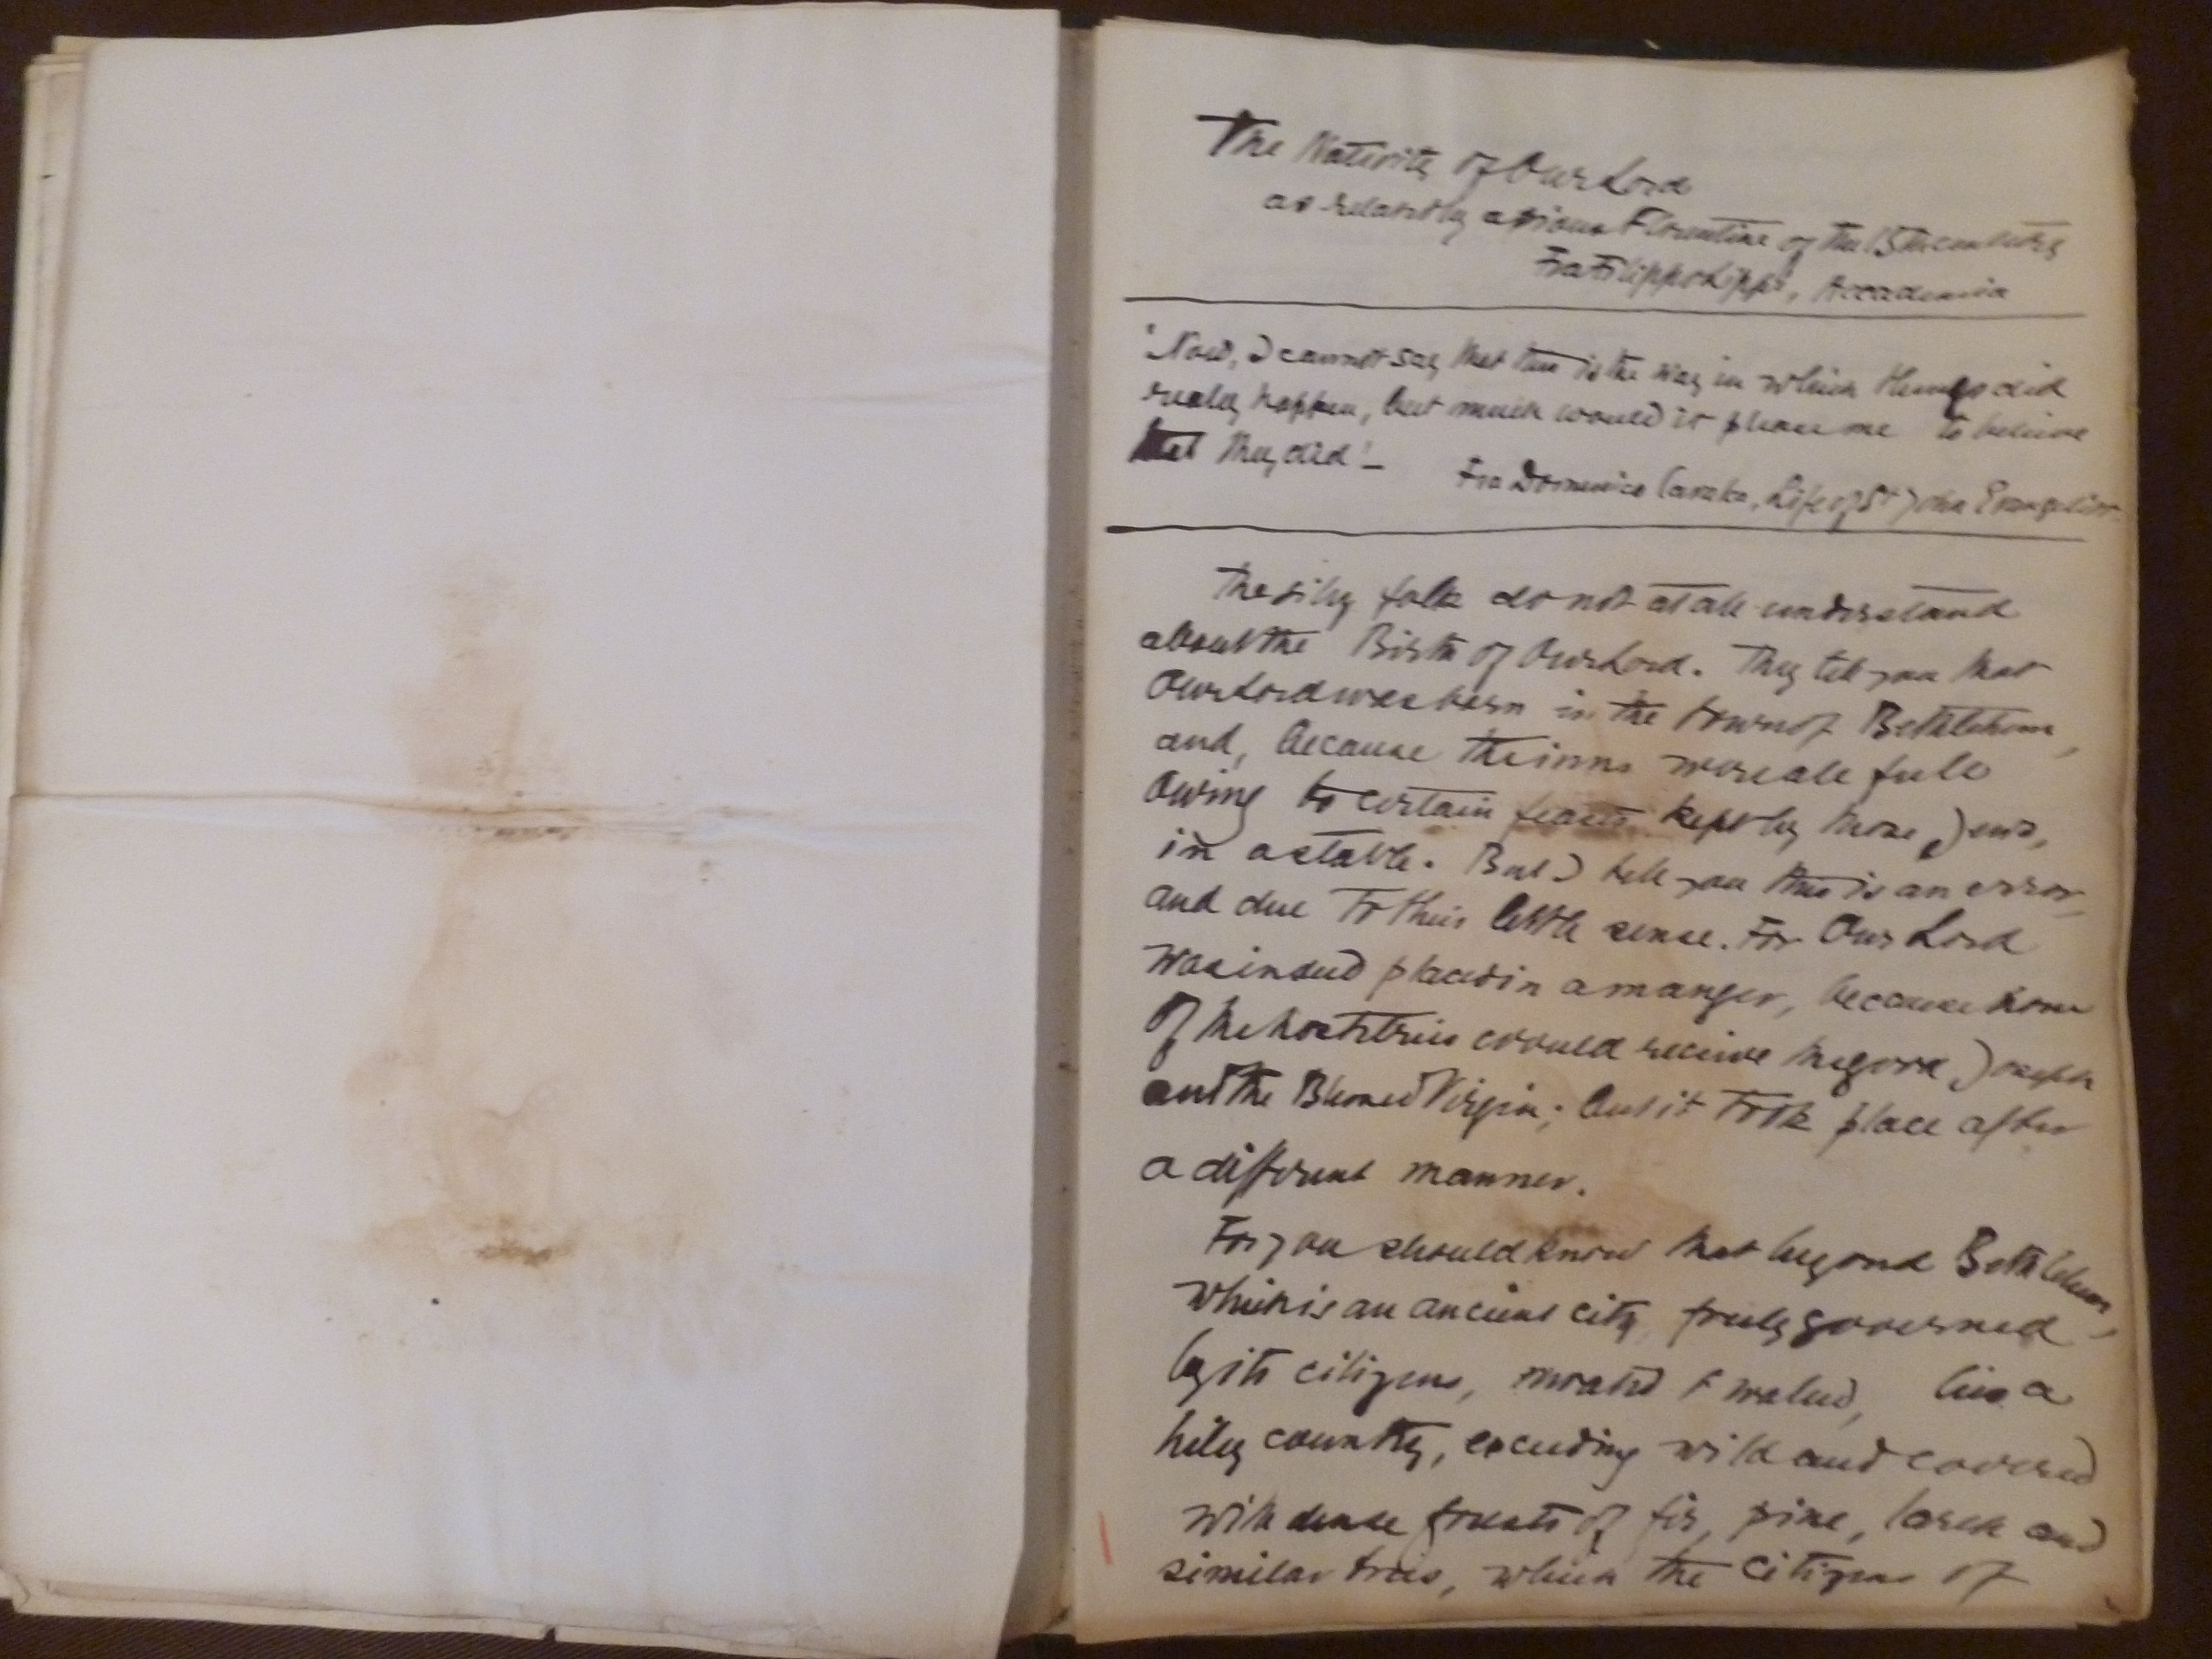 The Nativity of Our Lord
as related by a pious Florentine of the 15th century
Fra Filippo Lippi, Accademia
'Now, I cannot say that this is the way in which things did
really happen, but much would it please me to believe
that they did'—
Fra Domenico Cavalca, Life of St John Evangelist.
The silly folk do not at all understand
about the Birth of Our Lord. They tell you that
Our Lord was born in the town of Bethlehem,
and, because the inns were all full
owing to certain feasts kept by those Jews,
in a stable. But I tell you this is an error,
and due to their little sense. For Our Lord
was indeed placed in a manger, because none
of the hostelries would receive the good Joseph
and the Blessed Virgin; but it took place after
a different manner.
For you should know that beyond Bethlehem,
which is an ancient city, freely governed
by its citizens, moated & walled, lies a
hilly country, exceeding wild and covered
with dense forests of fir, pine, larch and
similar trees, which the citizens of